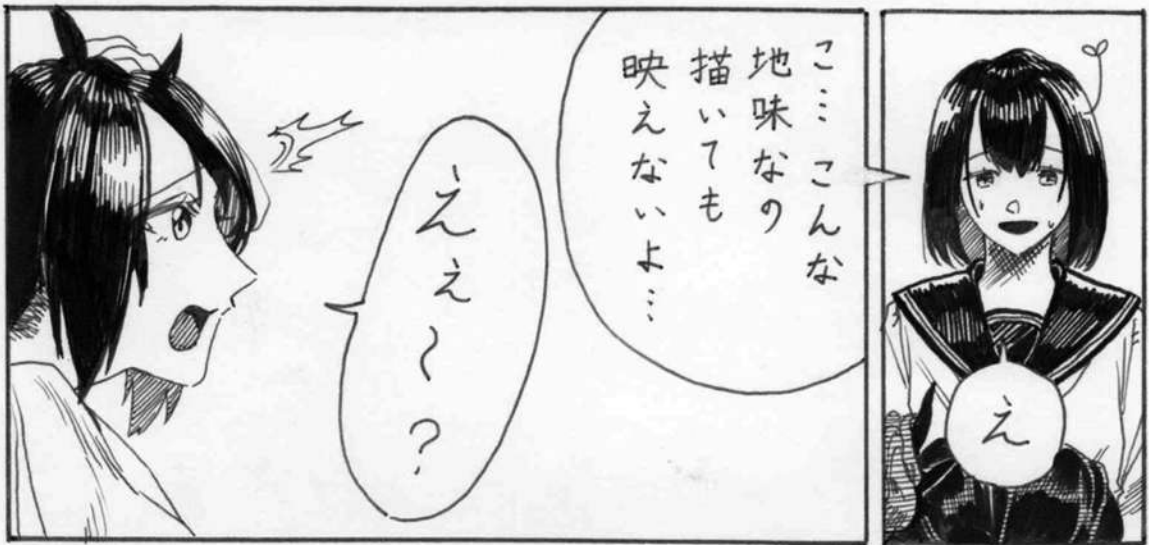 え
こ…こんな
地味なの
描いても
映えないよ…
ええ〜?